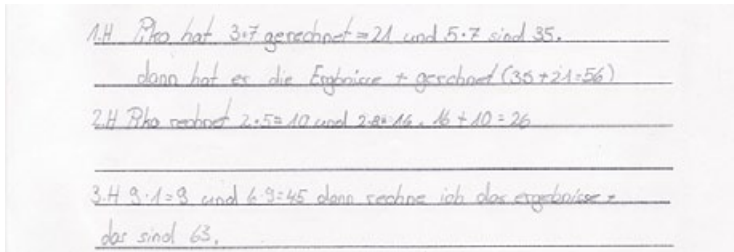 1.H Piko hat 3·7 gerechnet = 21 und 5·7 sind 35.
dann hat er die Ergbnisse + gerechnet (35+21=56)
2.H Piko rechnet 2·5=10 und 2·8=16. 16+10=26
3.H 9·1=9 und 6·9=45 dann rechne ich das ergebnisse +
das sind 63.